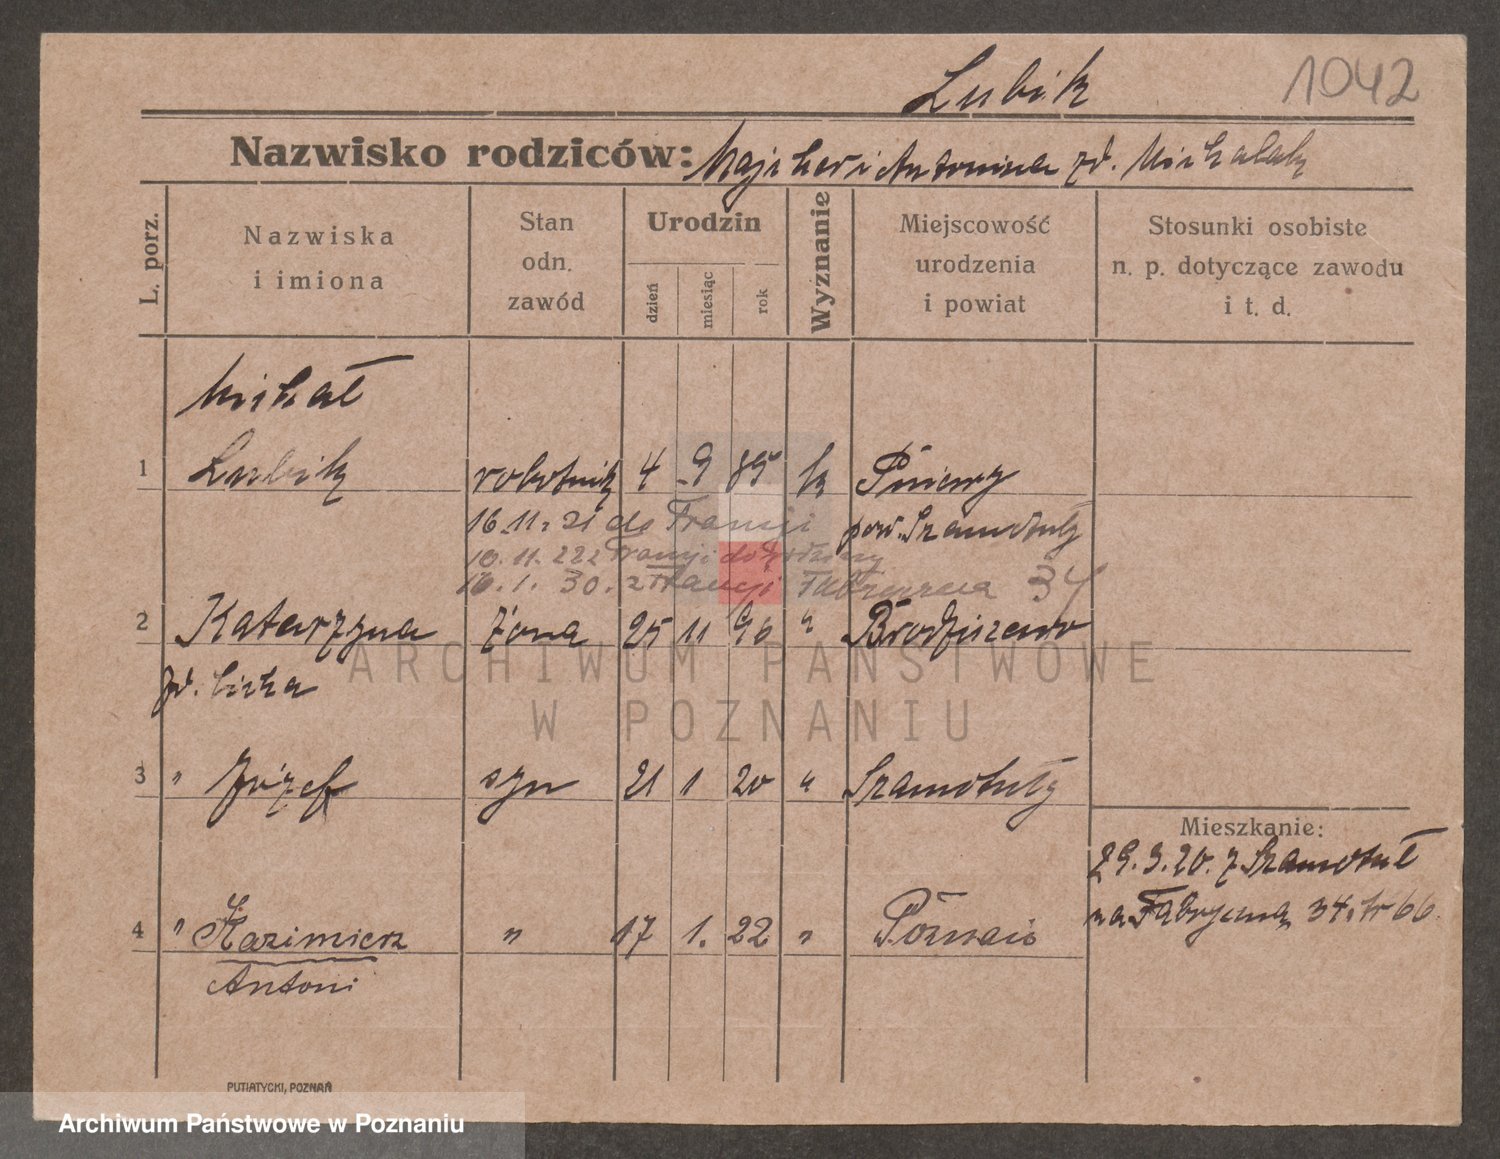 Lubik
1042
Nazwisko rodziców: Majcher i Antonina zd. Michalak
L. porz.
Nazwiska
i imiona
Stan
odn.
zawód
Urodzin
dzień
miesiąc
rok
Wyznanie
Miejscowość
urodzenia
i powiat
Stosunki osobiste
n. p. dotyczące zawodu
i t. d.
Michał
1 Lubik robotnik 4 9 85 k Pniewy
16.11.21 do Francji pow. Szamotuły
10.11.22 z Francji do
16.1.30. z Francji Fabryczna 34
2 Katarzyna żona 25 11 96 " Brodziszewo
zd. Licka
3 " Józef syn 21 1 20 " Szamotuły
Mieszkanie:
29.3.20. z Szamotuł
na Fabryczną 34. tr 66.
4 " Kazimierz " 17 1. 22 " Poznań
Antoni
PUTIATYCKI, POZNAŃ
ARCHIWUM PAŃSTWOWE
W POZNANIU
Archiwum Państwowe w Poznaniu